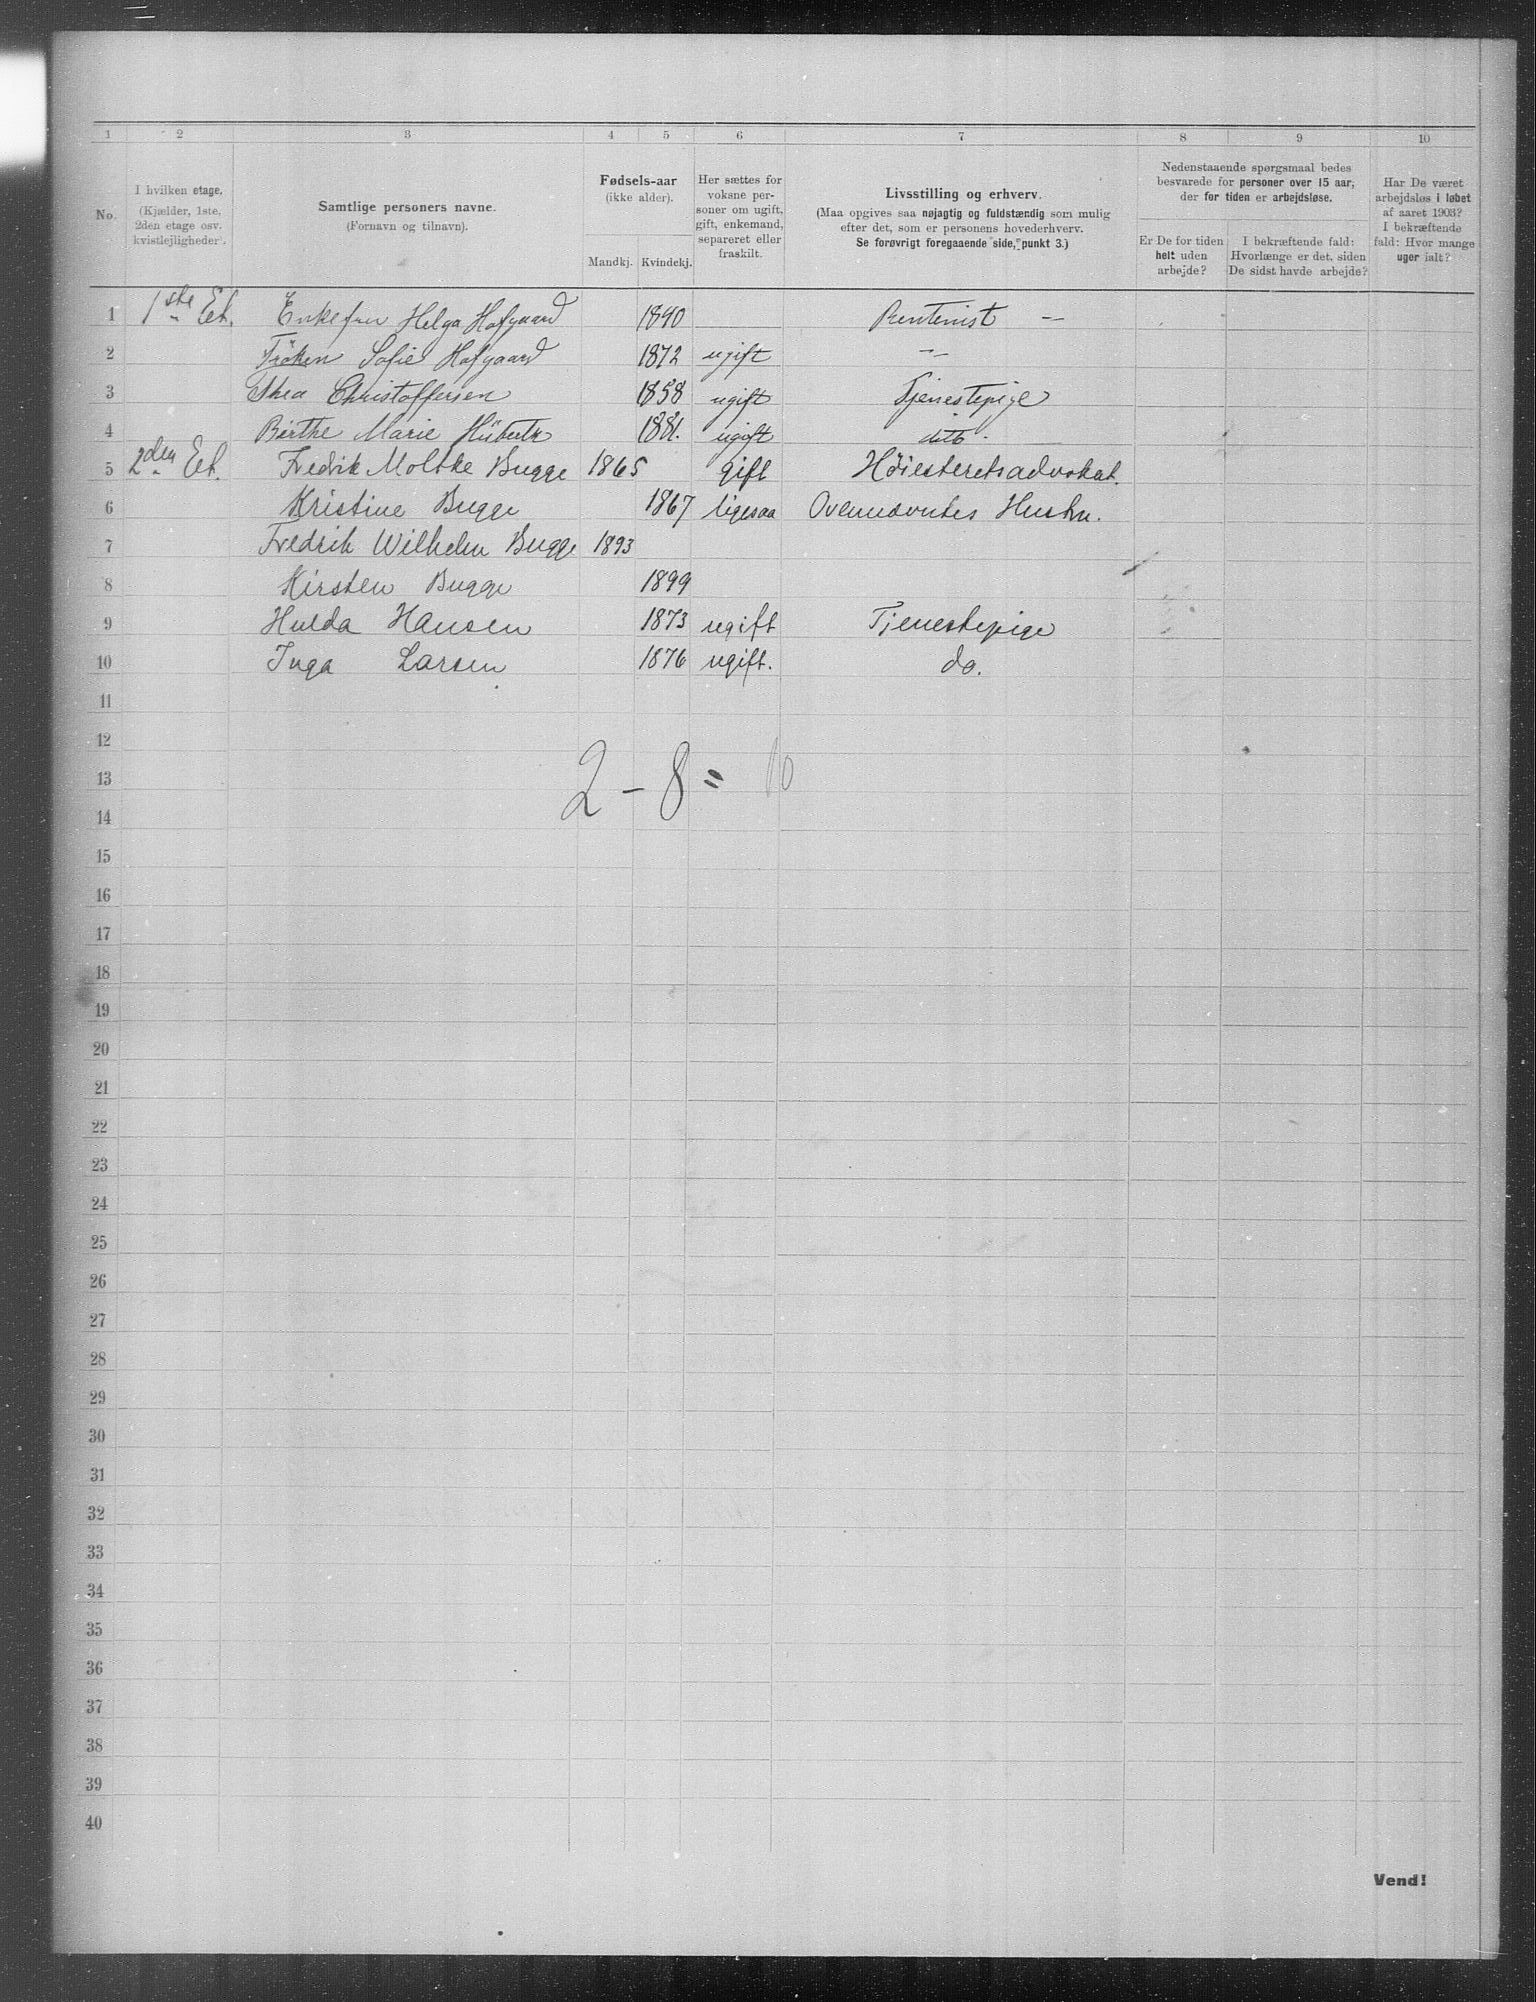 1 2 3 4 5 6 7 8 9 10
No.
I hvilken etage.
(Kjælder, 1ste,
2den etage osv.
kvistlejligheder).
Samtlige personers navne.
(Fornavn og tilnavn).
Fødsels-aar
(ikke alder).
Mandkj. Kvindekj.
Her sættes for
voksne per-
soner om ugift,
gift, enkemand,
separeret eller
fraskilt.
Livsstilling og erhverv.
(Maa opgives saa nøjagtig og fuldstændig som mulig
efter det, som er personens hovederhverv.
Se forøvrigt foregaaende side, punkt 3.)
Nedenstaaende spørgsmaal bedes
besvarede for personer over 15 aar,
der for tiden er arbejdsløse.
Er De for tiden
helt uden
arbejde?
I bekræftende fald:
Hvorlænge er det, siden
De sidst havde arbejde?
Har De været
arbejdsløs i løbet
af aaret 1903?
I bekræftende
fald: Hvor mange
uger ialt?
1 1ste Et. Enkefru Helga Hofgaard 1840 Rentenist —
2 Frøken Sofie Hofgaard 1872 ugift —"—
3 Thea Christoffersen 1858 ugift Tjenestepige
4 Berthe Marie 1881. ugift ditto.
5 2den Et. Fredrik Moltke Bugge 1865 gift Høiesteretsadvokat.
6 Kristine Bugge 1867 ligesaa Ovennævntes Hustru.
7 Fredrik Wilhelm Bugge 1893
8 Kirsten Bugge 1899
9 Hulda Hansen 1873 ugift Tjenestepige
10 Inga Larsen 1876 ugift. do.
11
12
2 - 8 = 10
13
14
15
16
17
18
19
20
21
22
23
24
25
26
27
28
29
30
31
32
33
34
35
36
37
38
39
40
Vend!